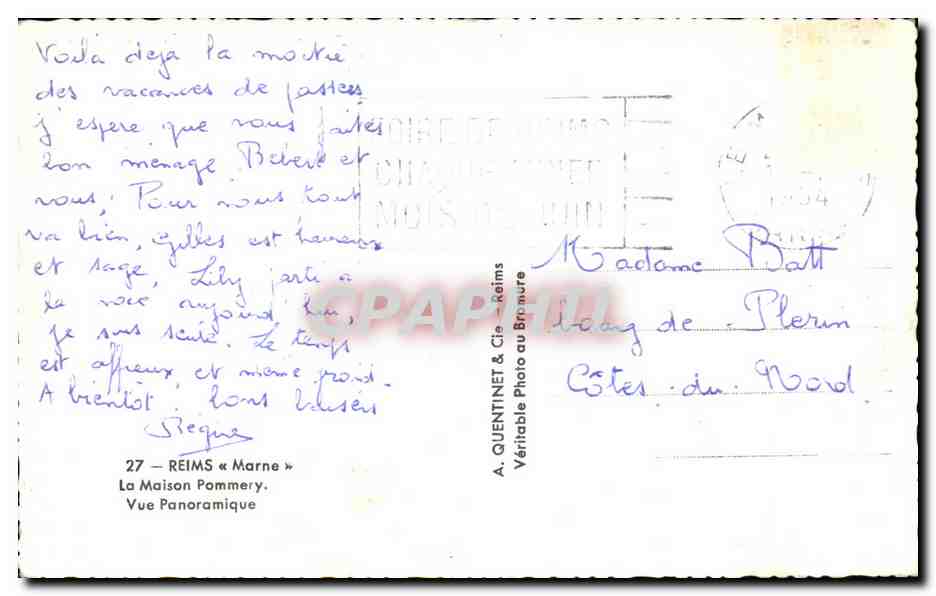 Voilà dejà la moitié
des vacances de passées
j'espere que vous faites
bon ménage, Bebert et
vous, Pour nous tout
va bien, Gilles est heureux
et sage, Lily parti a
la aujourd'hui,
je suis seule. Le temps
est affreux, et même froid.
A bientôt. bons baisers
Regine
27 — REIMS « Marne »
La Maison Pommery.
Vue Panoramique
A. QUENTINET & Cie - Reims
Véritable Photo au Bromure
FOIRE DE REIMS
CHAQUE ANNEE
MOIS DE JUIN
1954
Madame Batt
bourg de Plerin
Côtes-du-Nord
CPAPHIL